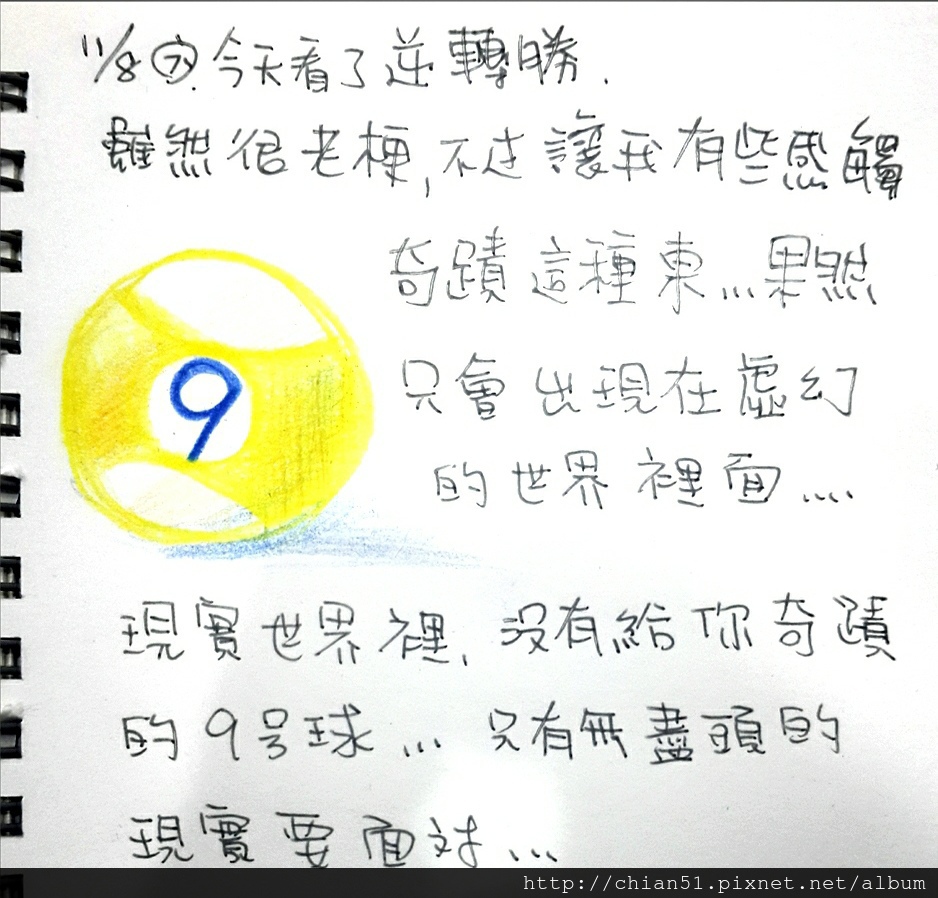 11/8 六 今天看了逆轉勝.
雖然很老梗,不过讓我有些感觸
奇蹟這種東...果然
只會出現在虛幻
的世界裡面....
9
現實世界裡,沒有給你奇蹟
的9号球...只有無盡頭的
現實要面对...
http://chian51.pixnet.net/album